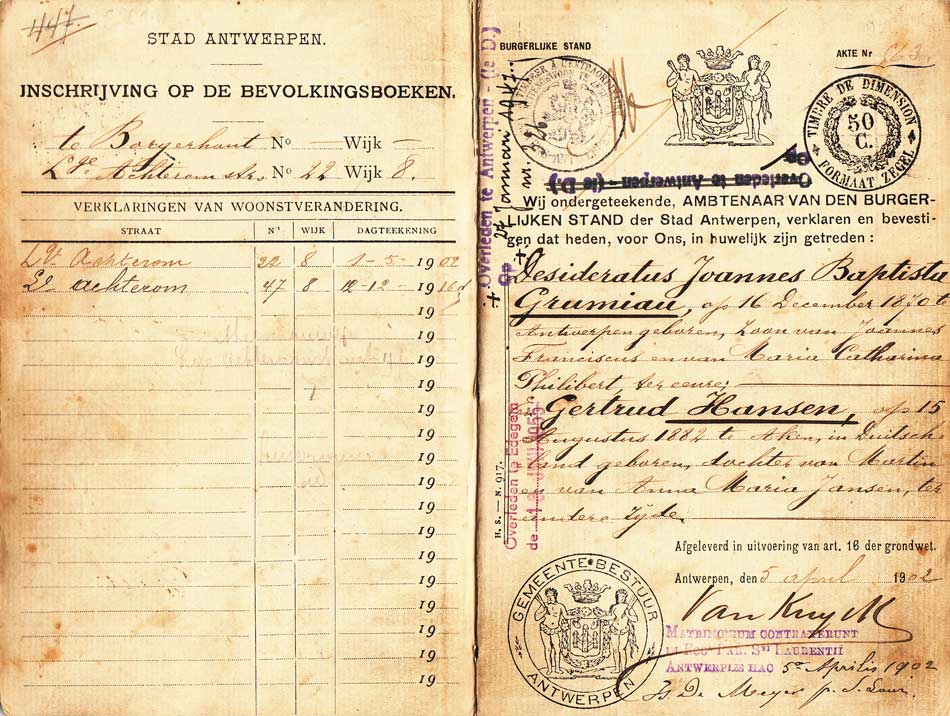 447.
STAD ANTWERPEN.
INSCHRIJVING OP DE BEVOLKINGSBOEKEN.
te Borgerhout No — Wijk —
Lge Achterom str. No 22 Wijk 8.
VERKLARINGEN VAN WOONSTVERANDERING.
STRAAT Nr WIJK DAGTEEKENING
Lge Achterom 22 8 1-5- 1902
Lge achterom 47 8 12-12- 1916
19
19
19
19
19
19
19
19
19
19
19
19
19
19
19
19
BURGERLIJKE STAND
AKTE Nr
TIMBRE DE DIMENSION
50
C.
FORMAAT ZEGEL
Overleden te Antwerpen - (1e D.)
Op
Overleden te Antwerpen - (1e D.)
Op
Januari 1947.
Wij ondergeteekende, AMBTENAAR VAN DEN BURGER-
LIJKEN STAND der Stad Antwerpen, verklaren en bevesti-
gen dat heden, voor Ons, in huwelijk zijn getreden :
Desideratus Joannes Baptista
Grumiau, op 16 December 1870 te
Antwerpen geboren, zoon van Joannes
Franciscus en van Maria Catharina
Philibert, ter eenre;
en Gertrud Hansen, op 15
Augustus 1882 te Aken, in Duitsch
land geboren, dochter van Martin
en van Anna Maria Jansen, ter
andere zijde.
H. S. — N. 917.
Overleden te Edegem
de
Afgeleverd in uitvoering van art. 16 der grondwet.
Antwerpen, den 5 april 1902
GEMEENTE-BESTUUR
ANTWERPEN
MATRIMONIUM CONTRAXERUNT
LAURENTII
ANTWERPIÆ HAC 5a Aprilis 1902
De Meyer